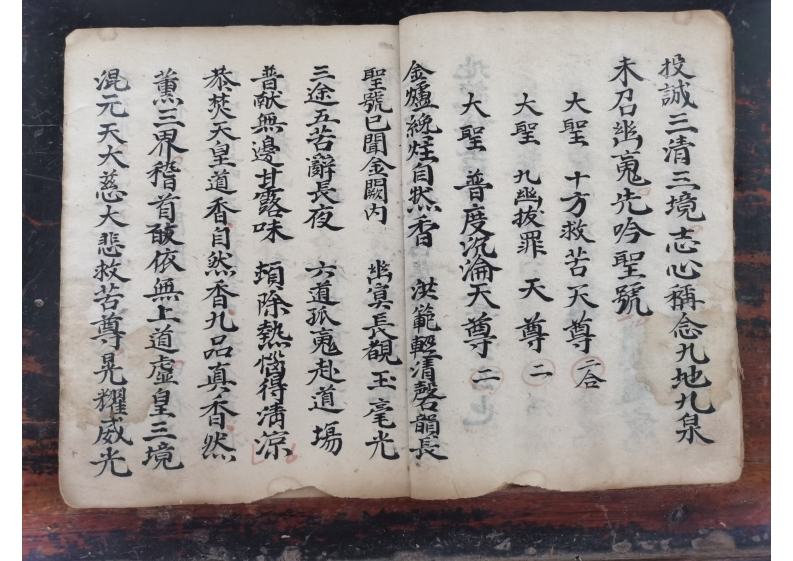 投誠三清三境志心稱念九地九泉
未召幽䰟先吟聖號
大聖 十方救苦天尊 二合
大聖 九幽拔罪天尊 二
大聖 普度沉淪天尊 二
金爐纔炷自然香 洪範輕清磬韻長
聖號已聞金闕内 幽冥長覩玉毫光
三途五苦辭長夜 六道孤䰟赴道場
普献無邊甘露味 頓除熱惱得清涼
恭焚天皇道香自然香九品真香然
薰三界稽首皈依無上道虛皇三境
混元天大慈大悲救苦尊晃耀威光